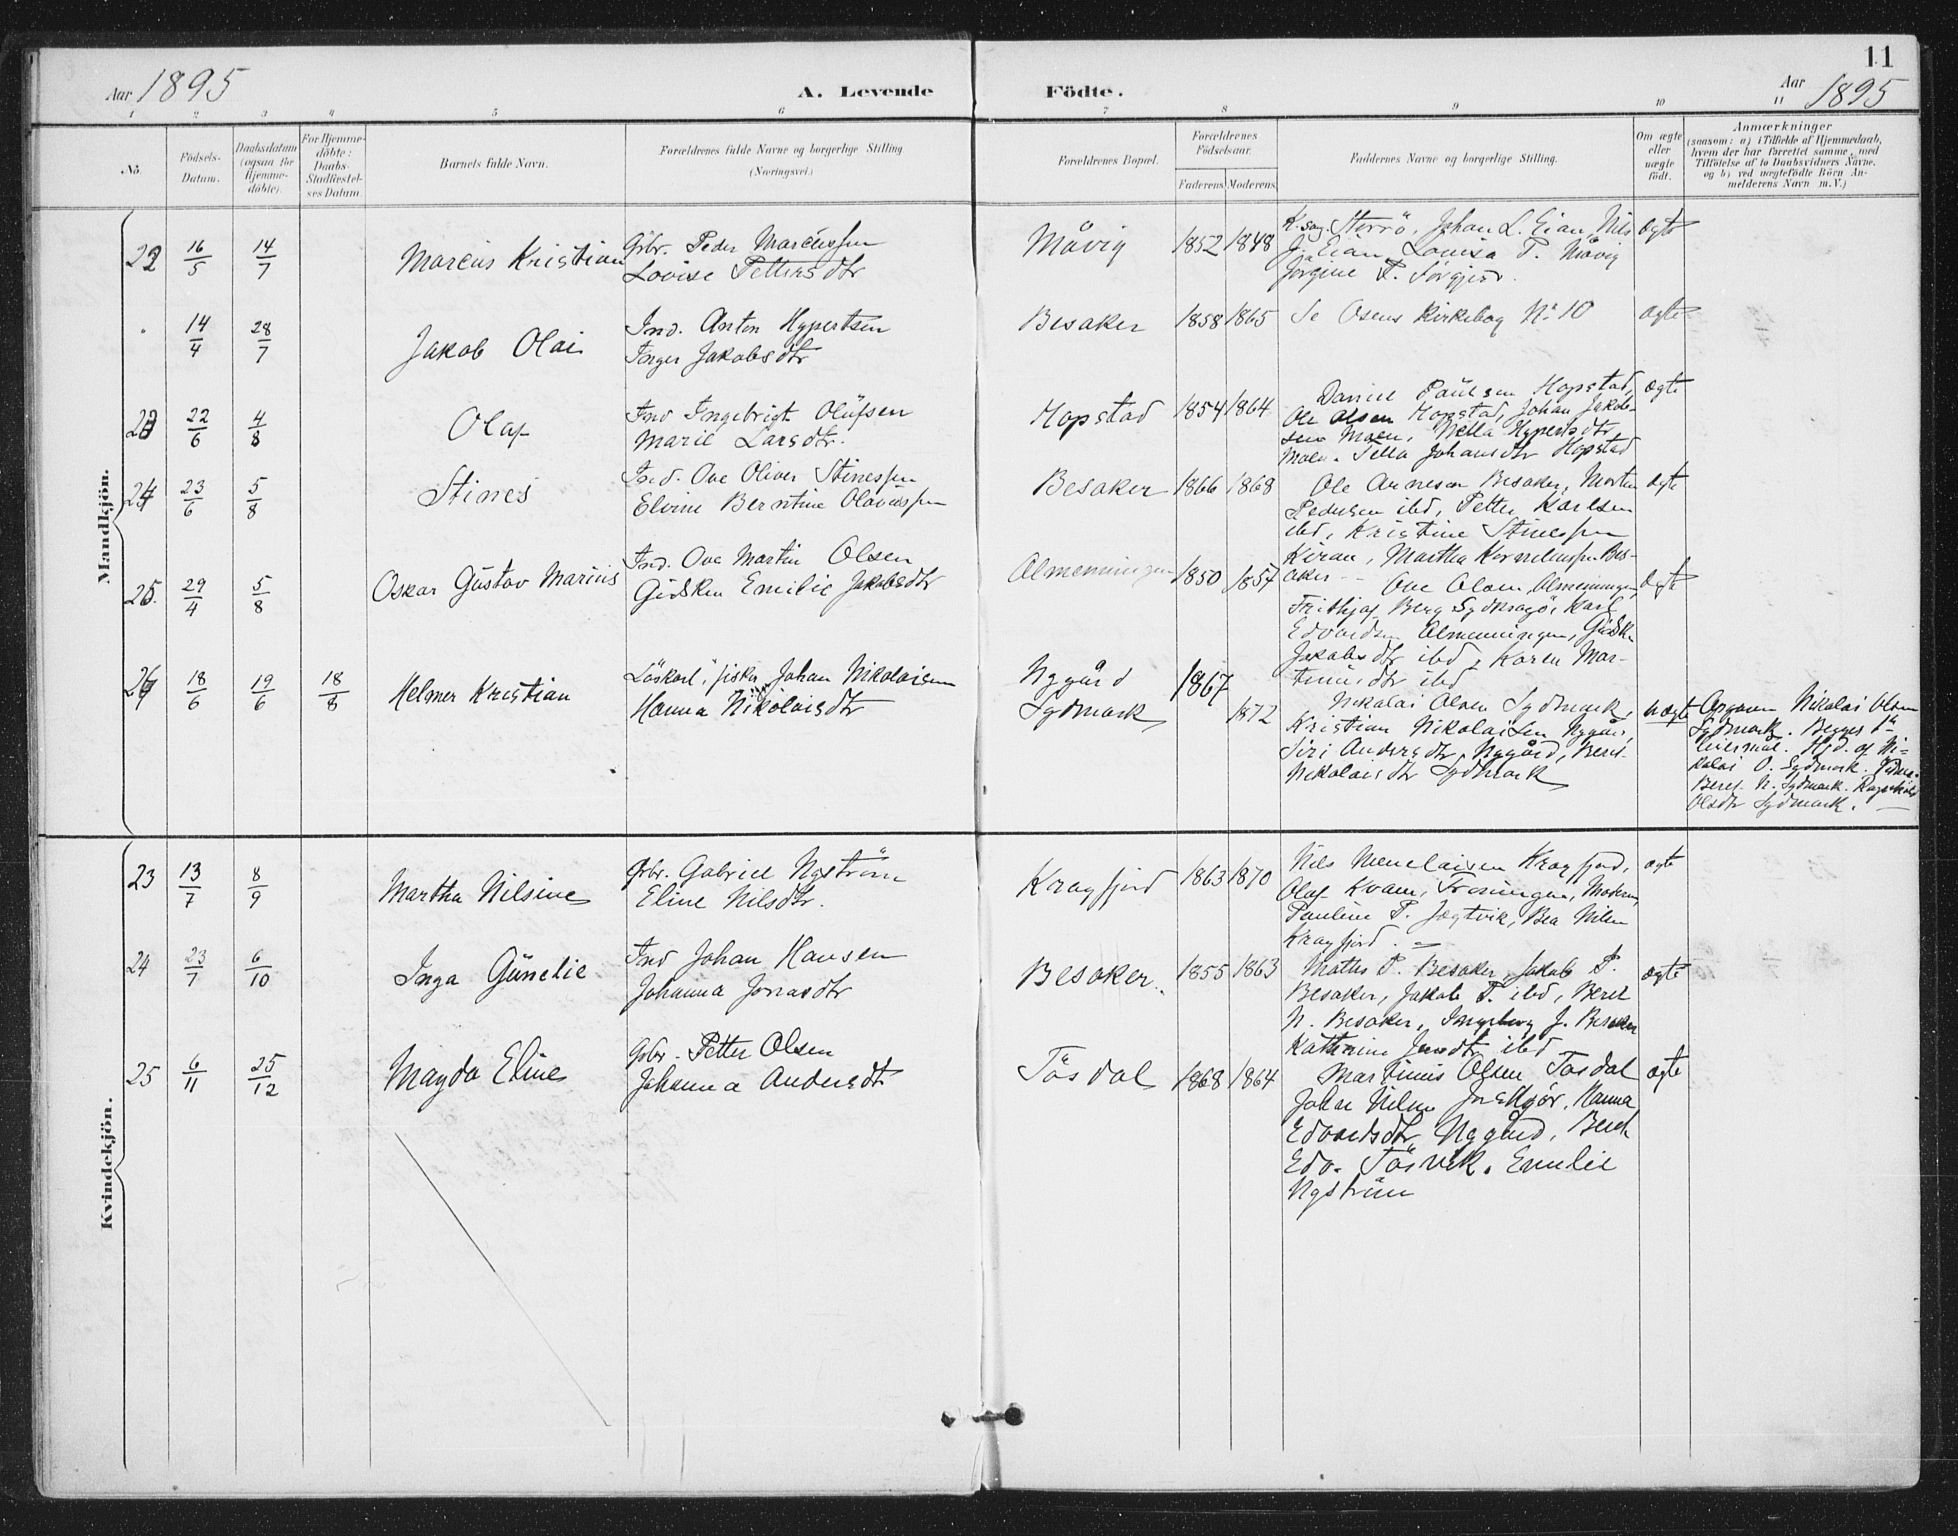 11
Aar 1895
A. Levende
Födte.
Aar 1895
1 2 3 4 5 6 7 8 9 10 11
No.
Födsels-
Datum.
Daabsdatum
(ogsaa for
Hjemme-
döbte).
For Hjemme-
döbte:
Daabs-
Stadfæstel-
ses Datum.
Barnets fulde Navn.
Forældrenes fulde Navne og borgerlige Stilling
(Næringsvei.)
Forældrenes Bopæl.
Forældrenes
Födselsaar.
Faderens Moderens
Faddernes Navne og borgerlige Stilling.
Om ægte
eller
uægte
födt.
Anmærkninger
(saasom: a) i Tilfælde af Hjemmedaab,
hvem der har forrettet samme, med
Tilföielse af to Daabsvidners Navne,
og b) ved uægtefödte Börn An-
melderens Navn m.V.)
Mandkjön.
22 16/5 14/7
Marcus Kristian
Gbr. Peder Marcussen
Lovise Pettersdtr
Måvig
1852 1848
K.sag Sterrö, Johan L. Eian, Nils
J. Eian, Lovisa P. Måvig
Jörgine P. Sörgjerd.
ægte
14/4 28/7
Jakob Olai
Ind. Anton Hypertsen
Inger Jakobsdtr
Besaker
1858 1865
Se Osens Kirkebog No 10
ægte
23 22/6 4/8
Olaf
Ind Ingebrigt Olufsen
Marie Larsdtr.
Hopstad
1854 1864
Daniel Paulsen Hopstad,
Ole Olsen Hopstad, Johan Jakob-
sen Moen, Nella Hypertsdtr
Moen. Sella Johansdtr Hopstad
ægte
24 23/6 5/8
Stines
Ind. Ove Oliver Stinessen
Elvine Berntine Olavessen
Besaker
1866 1868
Ole Arnesen Besaker, Morten
Pedersen ibd, Petter Karlsen
ibd, Kristine Stinessen
Kiran, Martha Korneliussen Bes-
aker
ægte
25 29/4 5/8
Oskar Gustav Marius
Ind. Ove Martin Olsen
Gidsken Emilie Jakobsdtr
Almenningen
1850 1857
Ove Olsen, Almenningen,
Frithjof Berg Sydkragö, Karl
Edvardsen Almenningen, Gidsken
Jakobsdtr ibd, Karen Mar-
tinusdtr ibd
ægte
26 18/6 19/6 18/8
Helmer Kristian
Löskarl, fisker Johan Nikolaisen
Hanna Nikolaisdtr
Nygård
Sydmark
1867
1872
Nikolai Olsen Sydmark,
Kristian Nikolaisen Nygård,
Siri Andersdtr Nygård, Beret
Nikolaisdtr Sydmark
uægte
Opgaven Nikolai Olsen
Sydmark. Begges 1ste
leiermål. Hjd. af Ni-
kolai O. Sydmark.
Beret N. Sydmark. Ragnhild
Olsdtr Sydmark.
Kvindekjön.
23 13/7 8/9
Martha Nilsine
Gbr. Gabriel Nyström
Eline Nilsdtr.
Kragfjord
1863 1870
Nils Menelaisen Kragfjord,
Olaf Kvam, Froningen, Moderen,
Pauline P. Jægtvik, Bea Nilsen
Kragfjord.
ægte
24 23/7 6/10
Inga Gunelie
Ind Johan Hansen
Johanna Jonasdtr
Besaker.
1855 1863
Mathis P. Besaker, Jakob P.
Besaker, Jakob T. ibd, Beret
N. Besaker, Ingeborg J. Besaker
Kathrine Jensdtr ibd
ægte
25 6/11 25/12
Magda Eline
Gbr. Petter Olsen
Johanna Andersdtr
Tösdal
1868 1864
Martinus Olsen Tosdal
Johan Nilsen Hanna
Edvardsdtr Nygård, Beret
Edv. Tösvik. Emilie
Nyström
ægte